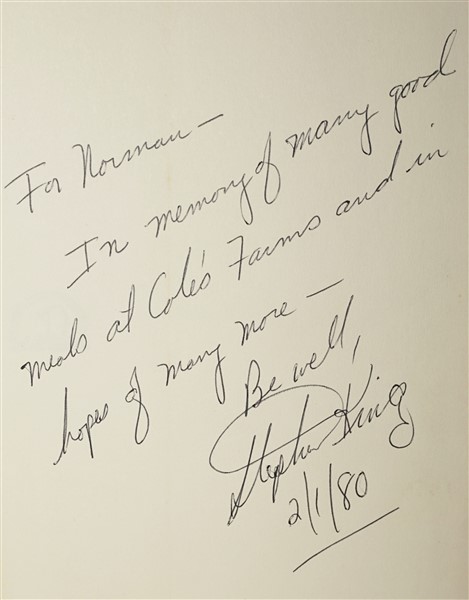 For Norman —
In memory of many good
meals at Cole's Farms and in
hopes of many more —
Be well,
Stephen King
2/1/80